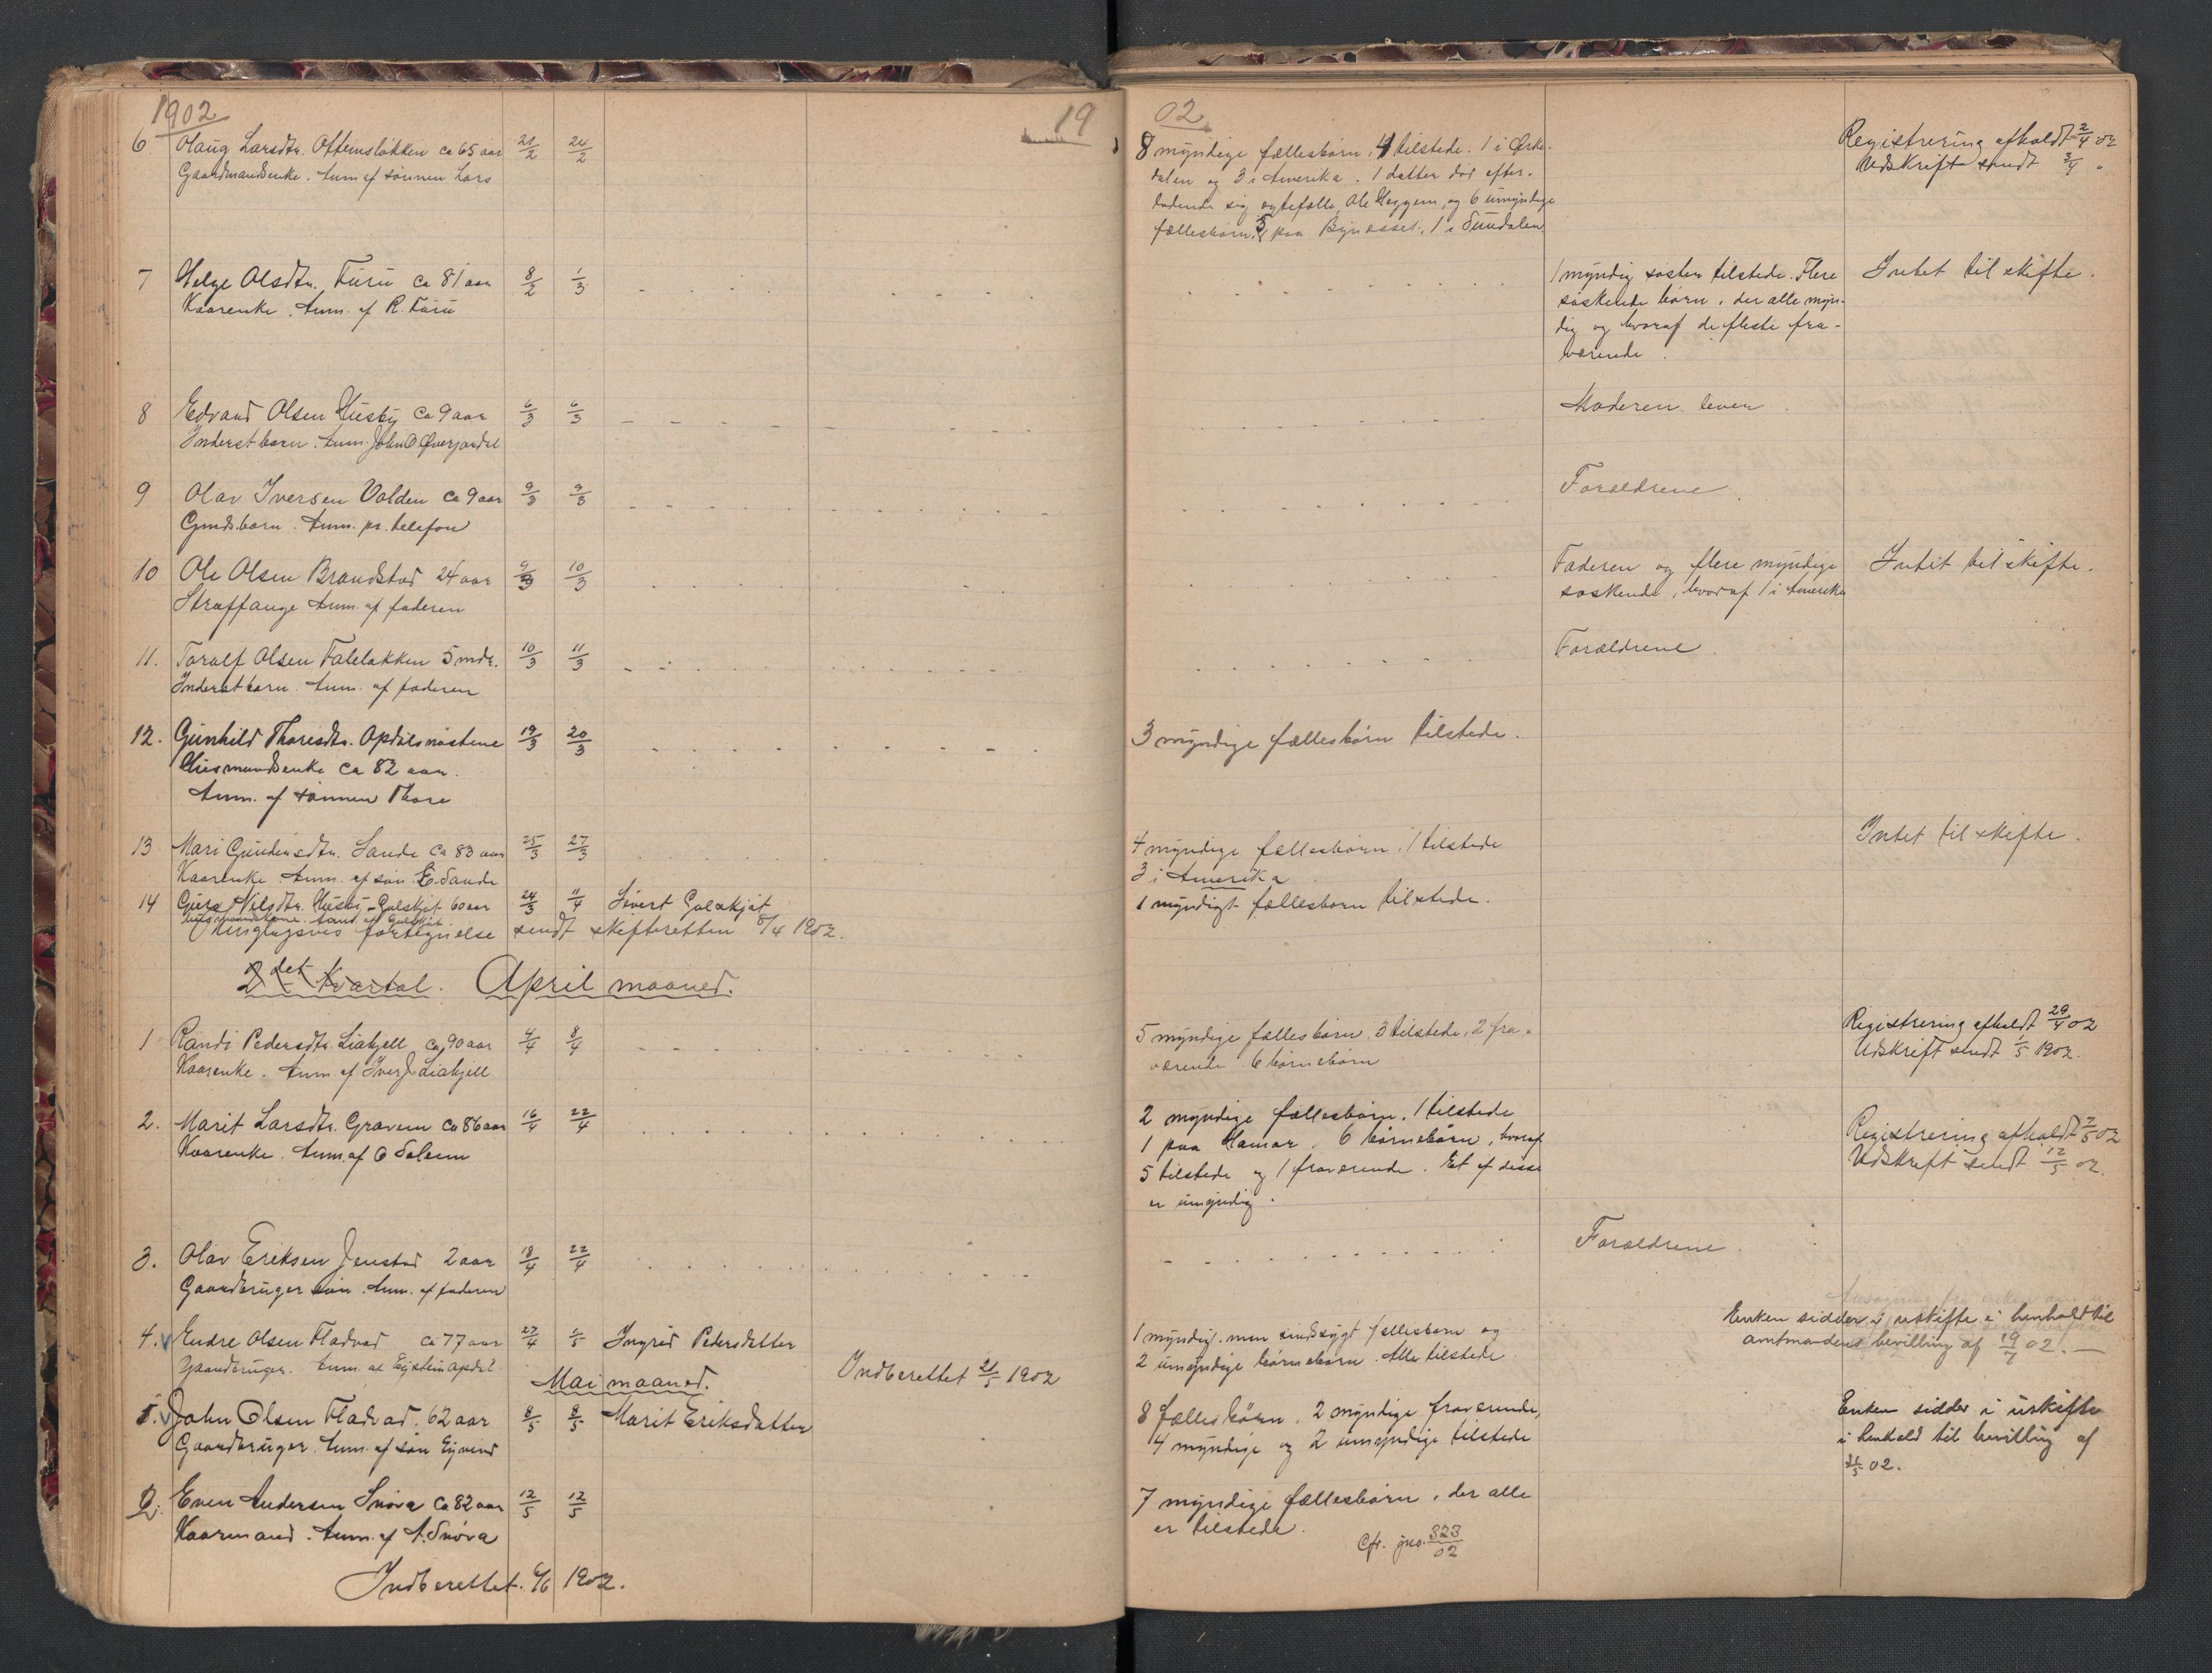 1902
19
02
6 Olaug Larsdtr. Offemsløkken ca 65 aar 21/2 24/2
Gaardmandsenke. Anm. af sønnen Lars
8 myndige fællesbørn, 4 tilstede. 1 i Ørke-
dalen og 3 i Amerika. 1 datter død efter-
ladende sig egtefælle, Ole Heggem, og 6 umyndige
fællesbørn, 5 paa Bynesset, 1 i Sundalen
Registrering afholdt 2/4 02
Udskrift sendt 3/4 "
7 Helge Olsdtr. Furu ca 81 aar 8/2 1/3
Kaarenke. Anm. af R. Furu
1 myndig søster tilstede. Flere
søskende børn, der alle myn-
dig og hvoraf de fleste fra-
værende.
Intet til skifte.
8 Edvard Olsen Husby ca 9 aar 6/3 6/3
Inderst barn. Anm. John O Øverjordel
Moderen lever.
9 Olav Iversen Volden ca 9 aar 9/3 9/3
Gmds. barn. Anm. pr. telefon
Forældrene.
10 Ole Olsen Brandstad 24 aar 9/3 10/3
Straffange Anm. af faderen
Faderen og flere myndige
søskende, hvoraf 1 i Amerika
Intet til skifte.
11. Toralf Olsen Faleløkken 5 mdr. 10/3 11/3
Inderst barn. Anm. af faderen
Forældrene.
12. Gunhild Thoresdtr. Opdølsnøstene 19/3 20/3
Husmandsenke ca 82 aar.
Anm. af sønnen Thore
3 myndige fællesbørn tilstede.
13 Mari Gundersdtr. Sande ca 83 aar 25/3 27/3
Kaarenke. Anm. af søn E. Sande
4 myndige fællesbørn, 1 tilstede
3 i Amerika
Intet til skifte.
14 Guru Nilsdtr. Husby-Galskjøt 60 aar 24/3 11/4 Sivert Galskjøt
Husmandskone. Anm. af Galskjøt
1 myndigt fællesbarn tilstede.
fortegnelse sendt skifteretten 8/4 1902.
2det Kvartal. April maaned.
1 Randi Pedersdtr. Liahjell ca 90 aar 4/4 8/4
Kaarenke. Anm. af Iver J Liahjell
5 myndige fællesbørn, 3 tilstede, 2 fra-
værende 6 børnebørn
Registrering afholdt 29/4 02
Udskrift sendt 1/5 1902.
2. Marit Larsdtr. Gravem ca 86 aar 16/4 22/4
Kaarenke. Anm. af O Dalem
2 myndige fællesbørn, 1 tilstede
1 paa Hamar. 6 børnebørn, hvoraf
5 tilstede og 1 fraværende. Et af disse
er umyndig.
Registrering afholdt 7/5 02
Udskrift sendt 12/5 02.
3. Olav Eriksen Jenstad 2 aar 18/4 22/4
Gaardbruger søn. Anm. af faderen
Forældrene.
4. Endre Olsen Fladvad ca 77 aar 27/4 6/5 Ingrid Pedersdatter
Gaardbruger. Anm. af Eystein Opdøl
1 myndigt, men sindssygt fællesbarn og
2 umyndige børnebørn. Alle tilstede.
Enken sidder i uskifte i henhold til
amtmandens bevilling af 19/7 02.
Mai maaned. Indberettet 21/5 1902
1. John Olsen Fladvad. 62 aar 8/5 8/5 Marit Eriksdatter
Gaardbruger. Anm. af søn Eyvind
8 fællesbørn, 2 myndige fraværende,
4 myndige og 2 umyndige tilstede
Enken sidder i uskifte
i henhold til bevilling af
31/5 02.
2. Even Andersen Snøva ca 82 aar 12/5 12/5
Kaarmand. Anm. af A. Snøva
7 myndige fællesbørn, der alle
er tilstede.
Cfr. jno. 323/02
Indberettet. 6/6 1902.